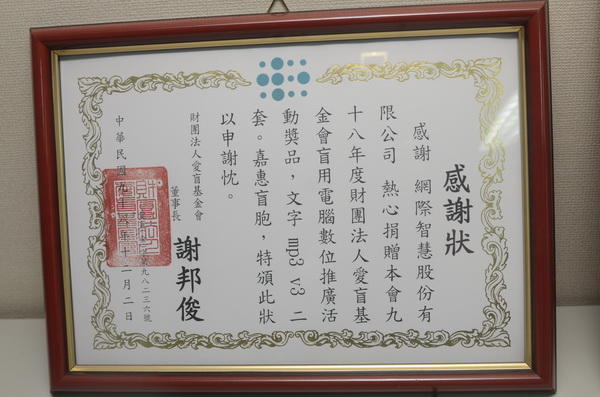 感謝狀
感謝 網際智慧股份有
限公司 熱心捐贈本會九
十八年度財團法人愛盲基
金會盲用電腦數位推廣活
動獎品，文字 mp3 v3 二
套。嘉惠盲胞，特頒此狀
以申謝忱。
財團法人愛盲基金會
董事長
謝邦俊
九八二三六號
中華民國九十八年十二月二日